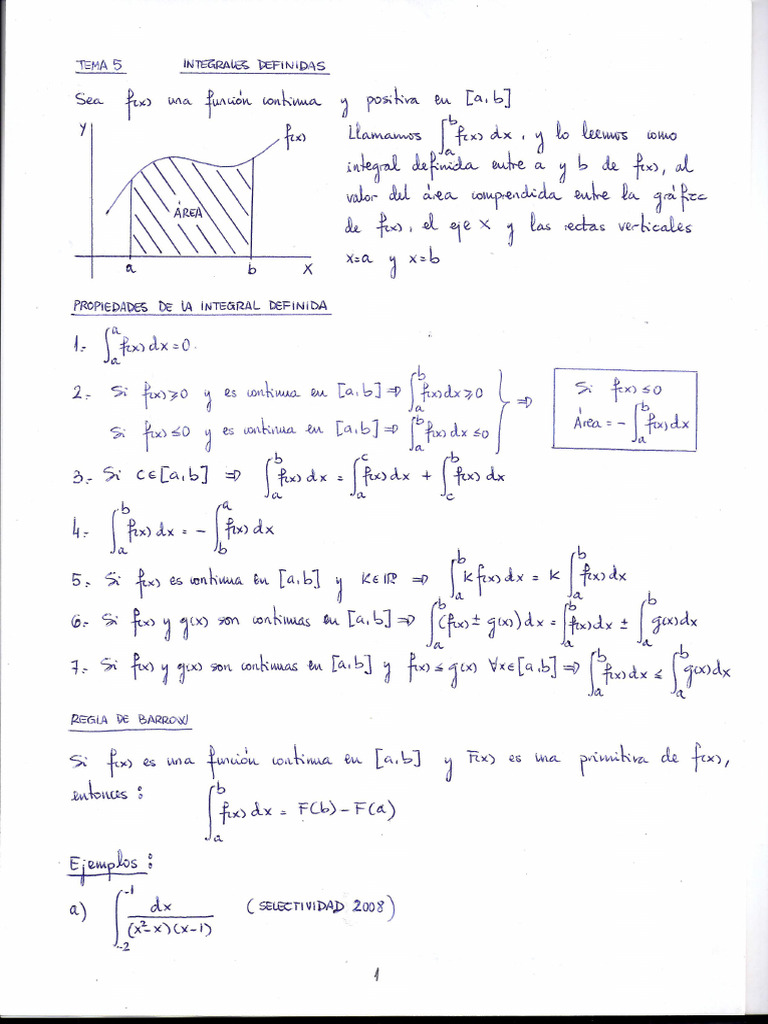 TEMA 5 INTEGRALES DEFINIDAS
Sea f(x) una función continua y positiva en [a,b]
y
f(x)
ÁREA
a b x
Llamamos ∫_a^b f(x) dx, y lo leemos como
integral definida entre a y b de f(x), al
valor del área comprendida entre la gráfica
de f(x), el eje X y las rectas verticales
x=a y x=b
PROPIEDADES DE LA INTEGRAL DEFINIDA
1.- ∫_a^a f(x) dx = 0.
2.- Si f(x) ≥ 0 y es continua en [a,b] ⇒ ∫_a^b f(x) dx ≥ 0
Si f(x) ≤ 0 y es continua en [a,b] ⇒ ∫_a^b f(x) dx ≤ 0
} ⇒
Si f(x) ≤ 0
Área = - ∫_a^b f(x) dx
3.- Si c∈[a,b] ⇒ ∫_a^b f(x) dx = ∫_a^c f(x) dx + ∫_c^b f(x) dx
4.- ∫_a^b f(x) dx = - ∫_b^a f(x) dx
5.- Si f(x) es continua en [a,b] y K∈ℝ ⇒ ∫_a^b K f(x) dx = K ∫_a^b f(x) dx
6.- Si f(x) y g(x) son continuas en [a,b] ⇒ ∫_a^b (f(x) ± g(x)) dx = ∫_a^b f(x) dx ± ∫_a^b g(x) dx
7.- Si f(x) y g(x) son continuas en [a,b] y f(x) ≤ g(x) ∀x∈[a,b] ⇒ ∫_a^b f(x) dx ≤ ∫_a^b g(x) dx
REGLA DE BARROW
Si f(x) es una función continua en [a,b] y F(x) es una primitiva de f(x),
entonces: ∫_a^b f(x) dx = F(b) - F(a)
Ejemplos:
a) ∫_{-2}^{-1} dx / ((x²-x)(x-1)) (SELECTIVIDAD 2008)
1